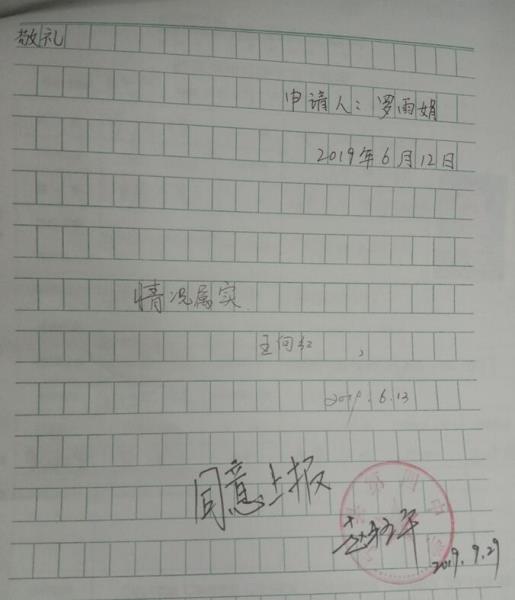 敬礼
申请人：罗雨娟
2019年6月12日
情况属实
王何红
2019.6.13
同意上报
2019.9.29